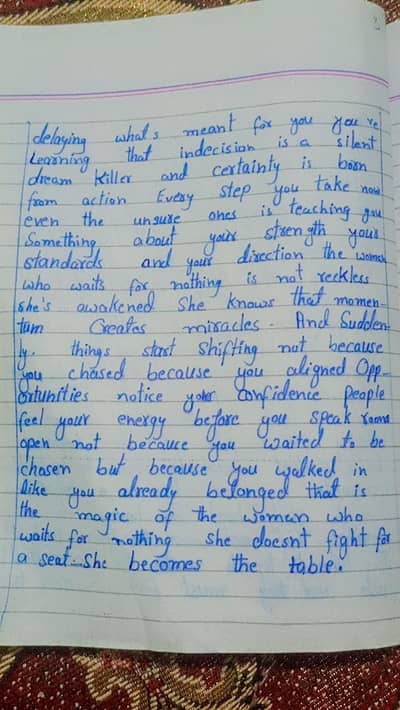 delaying what's meant for you you're
Learning that indecision is a silent
dream killer and certainty is born
from action Every step you take now
even the unsure ones is teaching you
Something about your strength your
standards and your direction the woman
who waits for nothing is not reckless
she's awakened She knows that momen-
tum Creates miracles. And Sudden-
ly. things start Shifting not because
you chased because you aligned Opp-
ortunities notice your Confidence people
feel your energy before you speak rooms
open not because you waited to be
chosen but because you walked in
like you already belonged that is
the magic of the woman who
waits for nothing she doesnt fight for
a seat. She becomes the table.